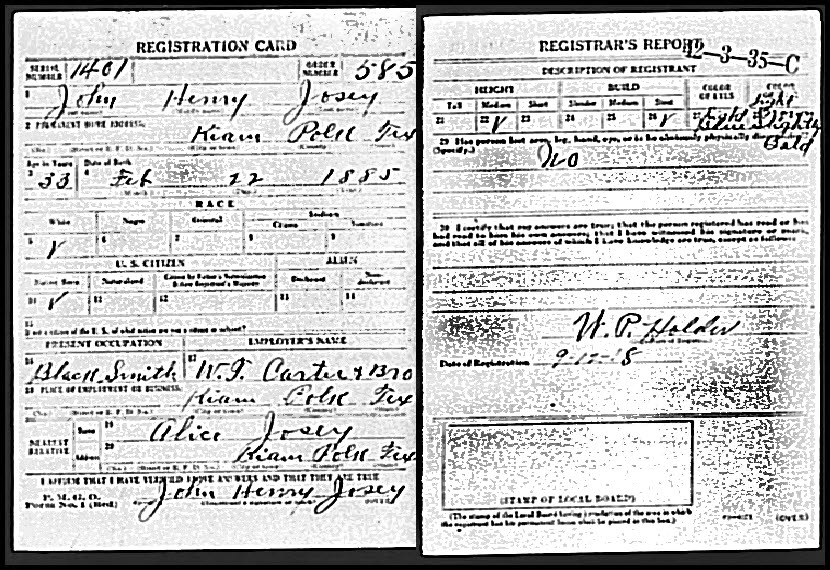 REGISTRATION CARD
SERIAL NUMBER 1401 ORDER NUMBER 585
1 John Henry Josey
2 PERMANENT HOME ADDRESS:
Kiam Polk Tex
Age in Years Date of Birth
3 33 4 Feb 22 1885
RACE
White Negro Oriental Indian
Citizen
5 V 6 7 8 9
U. S. CITIZEN ALIEN
Native Born Naturalized Citizen by Father's Naturalization Before Registrant's Majority Declarant Non-declarant
10 V 11 12 13 14
15
If not a citizen of the U. S. of what nation are you a citizen or subject?
PRESENT OCCUPATION EMPLOYER'S NAME
16 Black Smith 17 W.T. Carter & Bro
18 PLACE OF EMPLOYMENT OR BUSINESS:
Kiam Polk Tex
NEAREST RELATIVE
Name 19 Alice Josey
Address 20 Kiam Polk Tex
I AFFIRM THAT I HAVE VERIFIED ABOVE ANSWERS AND THAT THEY ARE TRUE
P. M. G. O.
Form No. 1 (Red) John Henry Josey
REGISTRAR'S REPORT
42-3-35-C
DESCRIPTION OF REGISTRANT
HEIGHT BUILD COLOR OF EYES COLOR
Tall Medium Short Slender Medium Stout
21 22 V 23 24 25 26 V 27
Light
Blue Slightly
Bald
29 Has person lost arm, leg, hand, eye, or is he obviously physically
(Specify.) No
30 I certify that my answers are true; that the person registered has read or has
had read to him his own answers; that I have witnessed his signature or mark,
and that all of his answers of which I have knowledge are true, except as follows:
W. P. Holder
Date of Registration 9-12-18
(STAMP OF LOCAL BOARD)
(The stamp of the Local Board having jurisdiction of the area in which
the registrant has his permanent home shall be placed in this box.)
(OVER)